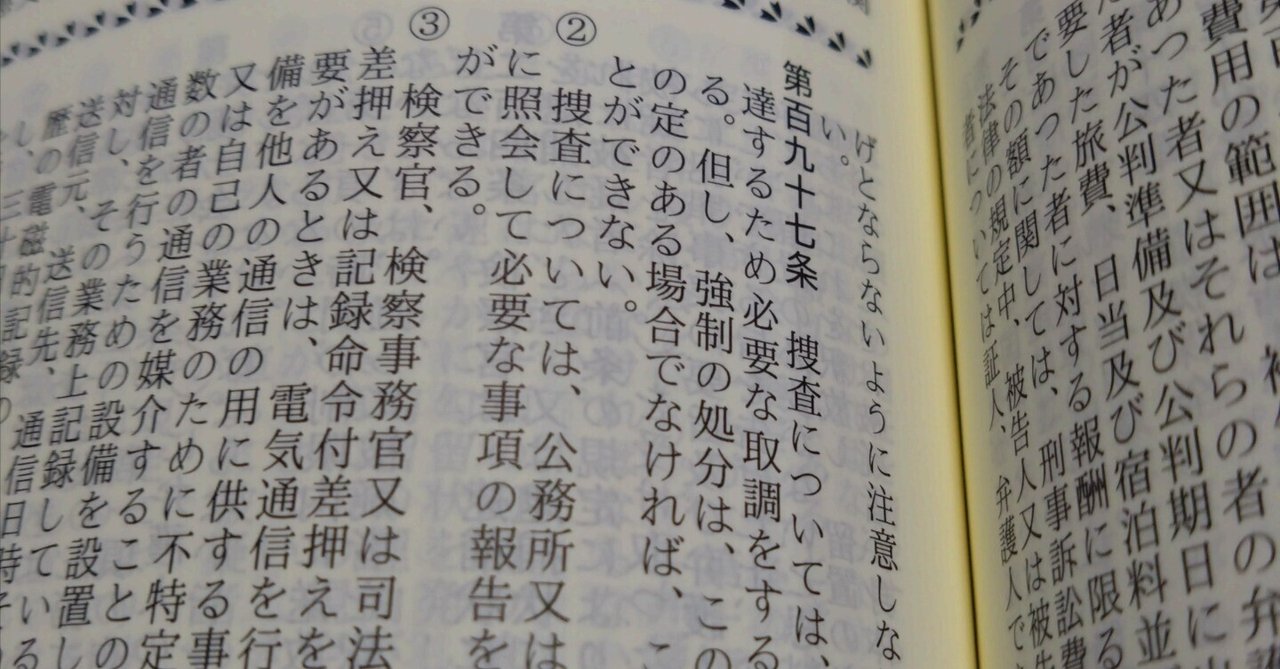 費用の範囲は、被
あつた者又はそれらの者の弁護
た者が公判準備及び公判期日に
要した旅費、日当及び宿泊料並
であつた者に対する報酬に限る
その額に関しては、刑事訴訟費
法律の規定中、被告人又は被告
者については証人、弁護人で
げとならないように注意しな
い。
第百九十七条 捜査については、
達するため必要な取調をする
る。但し、強制の処分は、この
の定のある場合でなければ、こ
とができない。
② 捜査については、公務所又は
に照会して必要な事項の報告を
ができる。
③ 検察官、検察事務官又は司法
差押え又は記録命令付差押えを
要があるときは、電気通信を行
備を他人の通信の用に供する事
又は自己の業務のために不特定
数の者の通信を媒介することの
通信を行うための設備を設置し
対し、その業務上記録している
送信元、送信先、通信日時そ
歴の電磁的記録の
し、三十